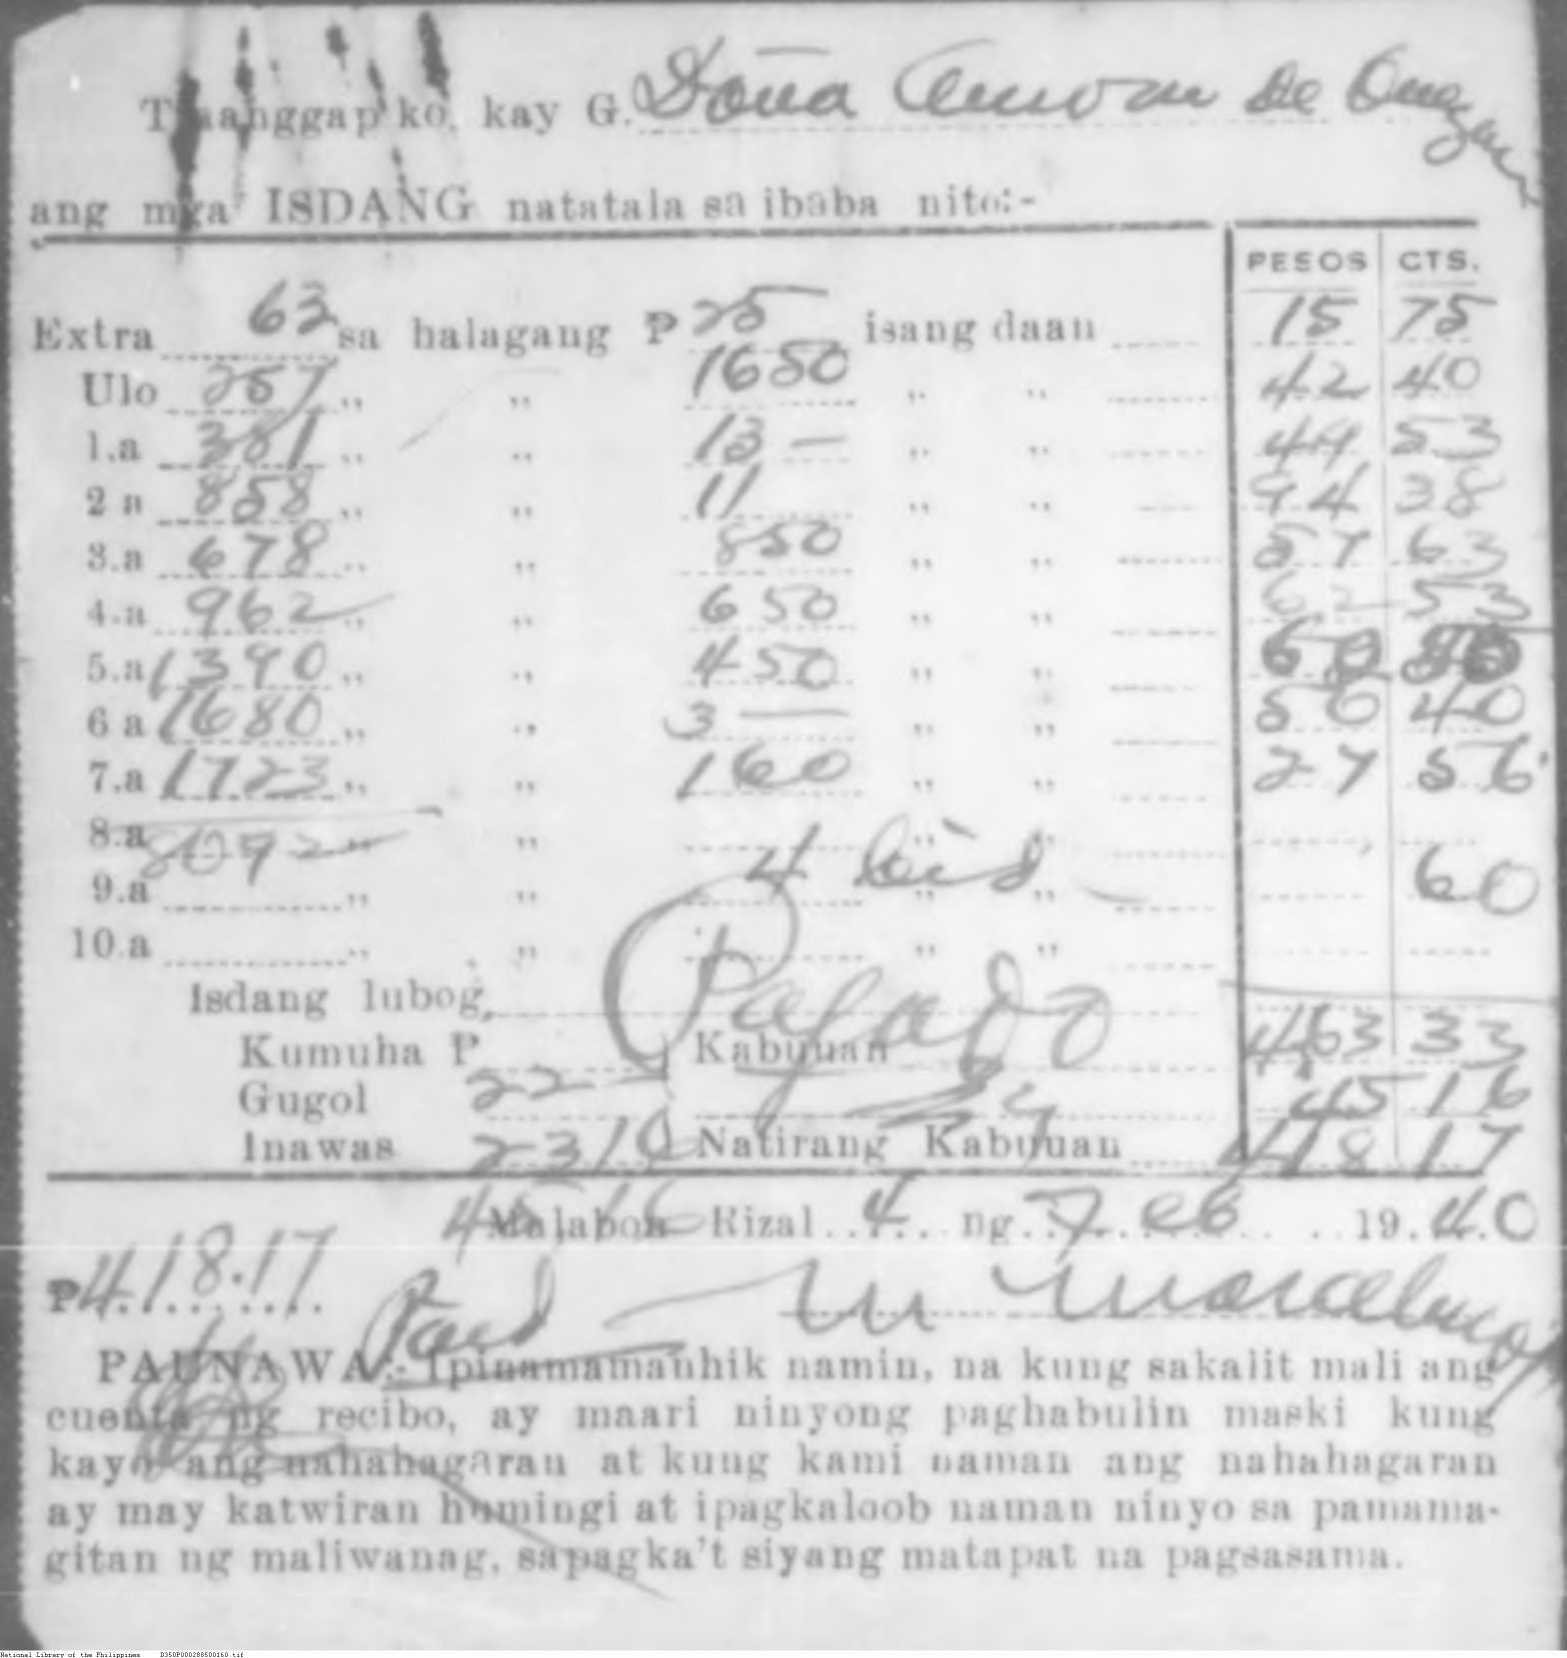 Tinanggap ko, kay G. Doña de
ang mga ISDANG natatala sa ibaba nito:-
PESOS CTS.
Extra 63 sa halagang ₱ 25 isang daan 15 75
Ulo 257 ,, ,, 1650 ,, ,, 42 40
1.a 381 ,, ,, 13 — ,, ,, 49 53
2 a 858 ,, ,, 11 ,, ,, 94 38
3.a 678 ,, ,, 850 ,, ,, 57 63
4.a 962 ,, ,, 650 ,, ,, 62 53
5.a 1390 ,, ,, 450 ,, ,, 62 55
6 a 1680 ,, ,, 3 — ,, ,, 50 40
7.a 1723 ,, ,, 160 ,, ,, 27 56
8.a 8092 ,, ,, ,, ,,
9.a ,, ,, 4 ,, ,, 60
10.a ,, ,, ,, ,,
Isdang lubog, Pagado
Kumuha ₱ Kabuuan 463 33
Gugol 22 — 45 16
Inawas 2316 Natirang Kabuuan 418 17
45 16
Malabon Rizal 4 ng Feb 1940
₱ 418.17 Paid M Marcelino
PAUNAWA:- Ipinamamanhik namin, na kung sakalit mali ang
cuenta ng recibo, ay maari ninyong paghabulin maski kung
kayo ang nahahagaran at kung kami naman ang nahahagaran
ay may katwiran humingi at ipagkaloob naman ninyo sa pamama-
gitan ng maliwanag, sapagka't siyang matapat na pagsasama.
National Library of the Philippines D350P000288500160.tif